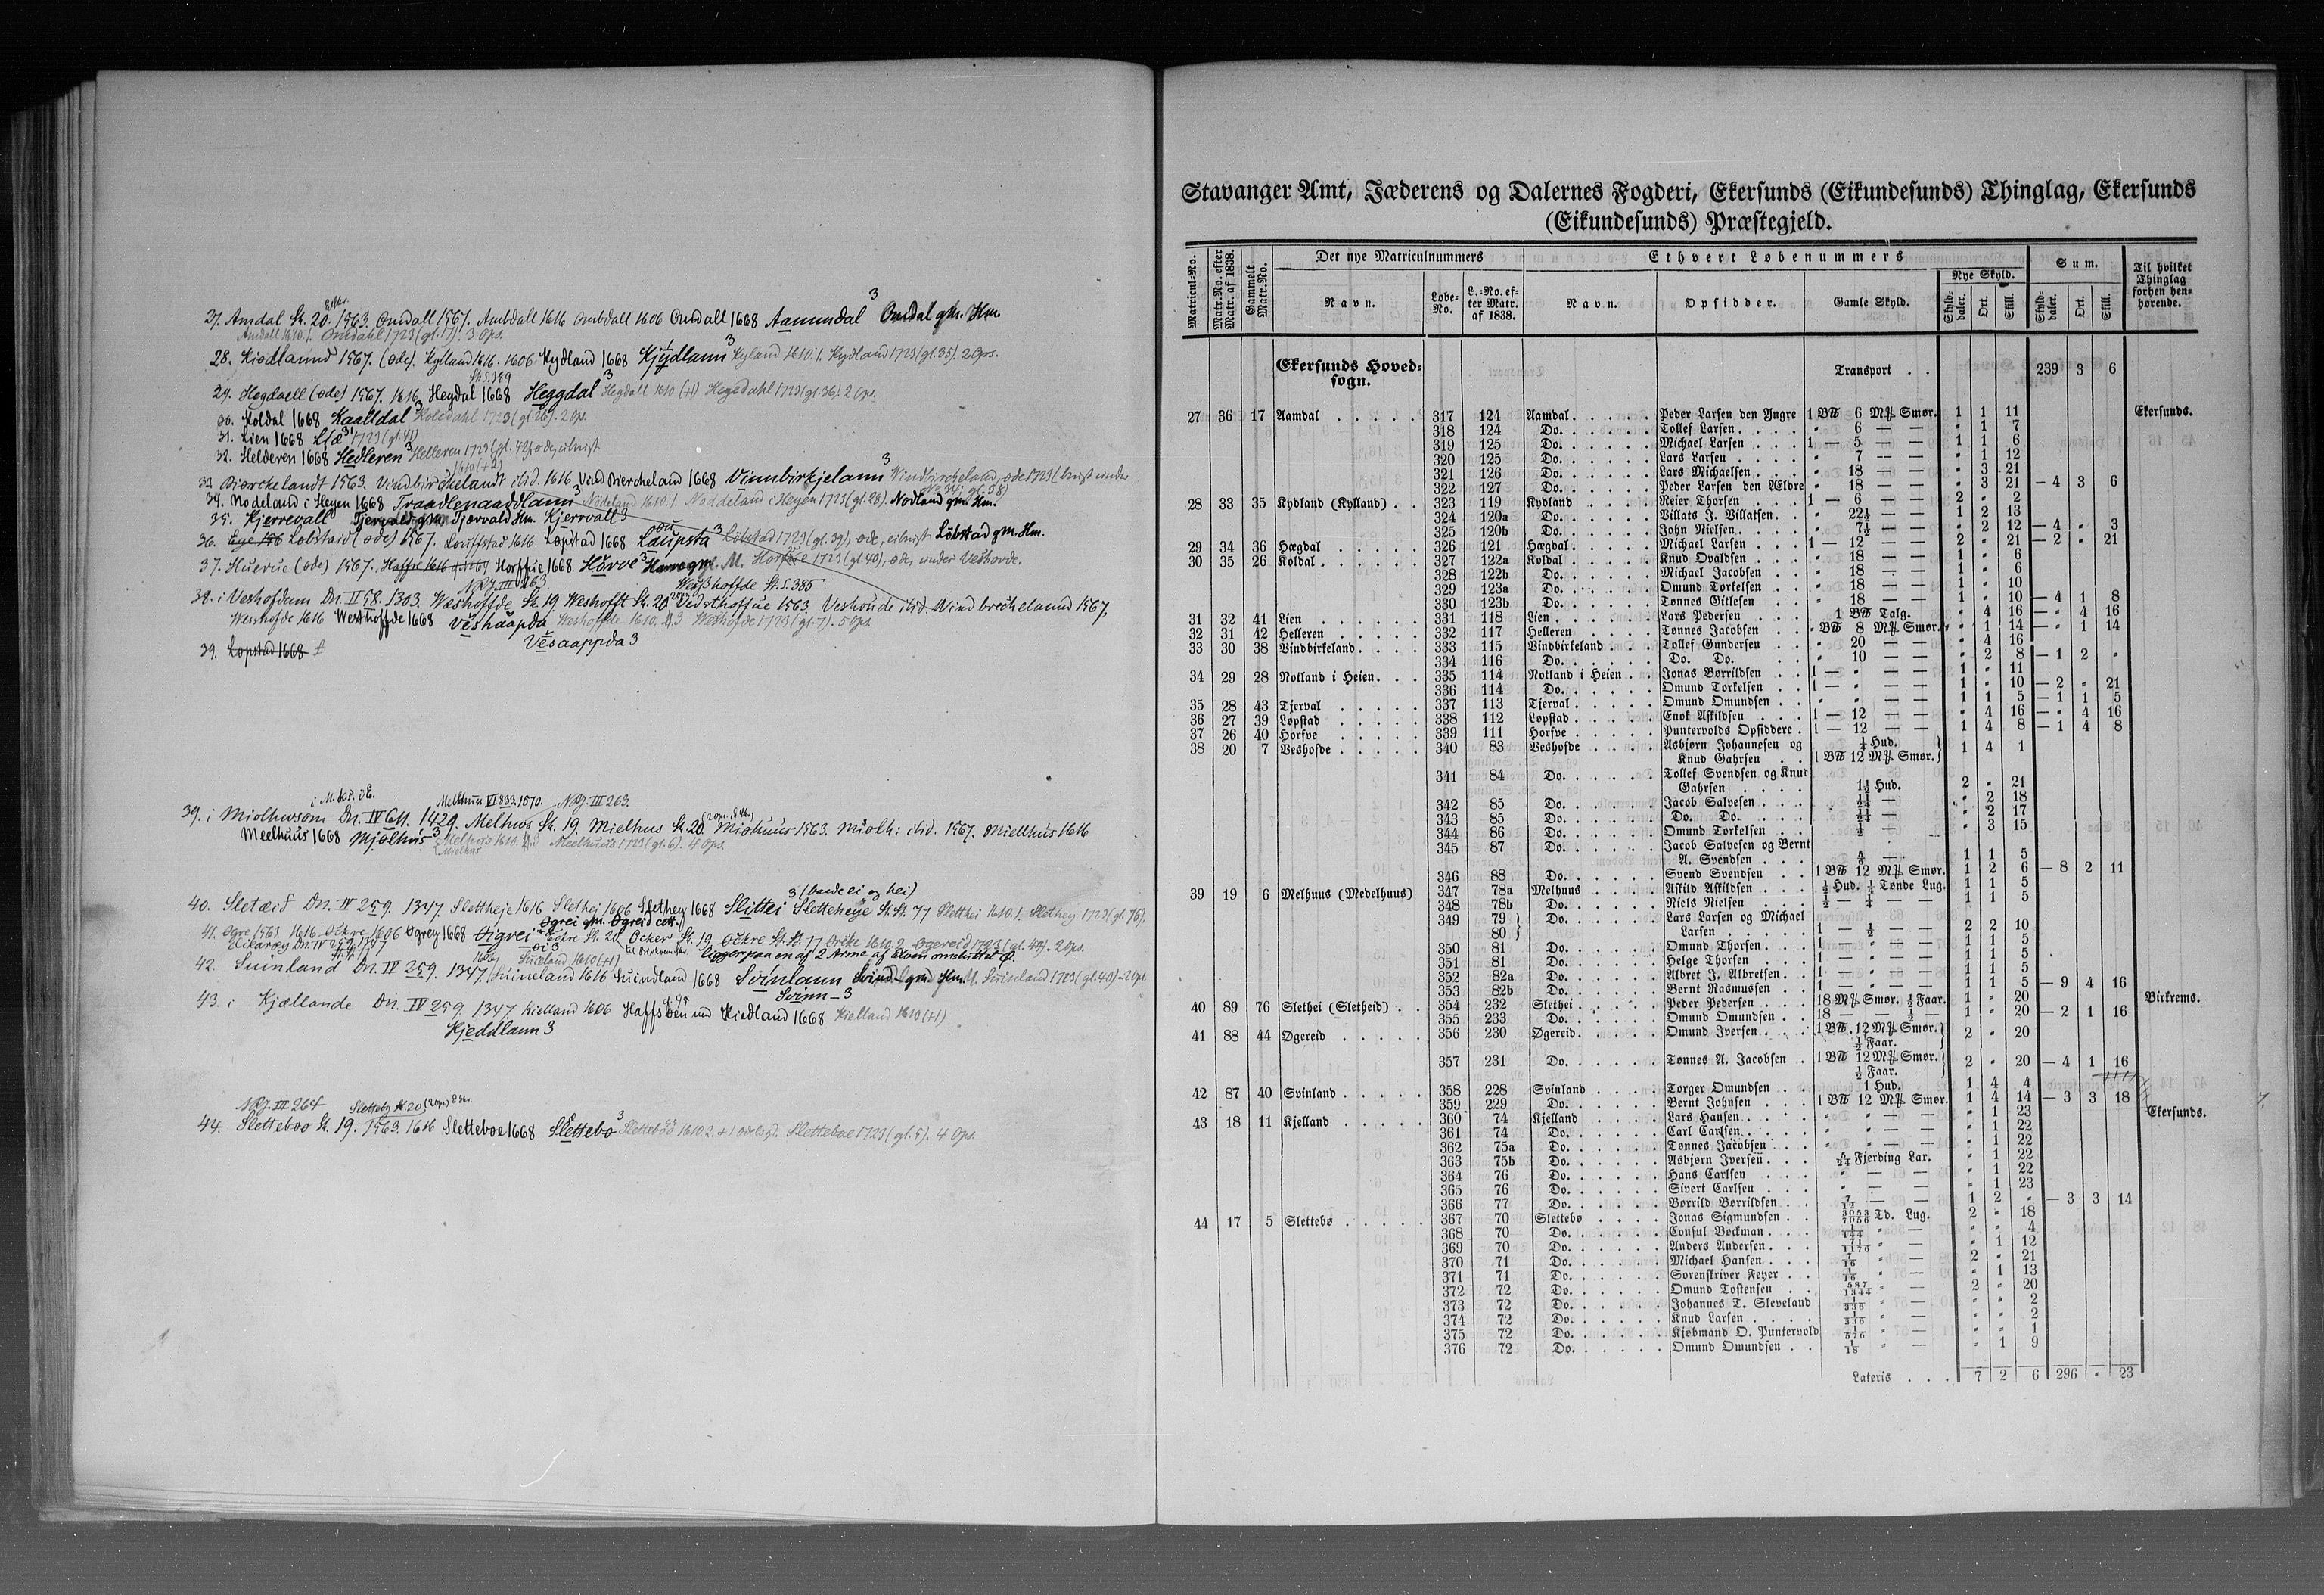 27. Amdal Sk. 20. 1563. Omdall 1567. Ambdall 1616 Ombdall 1606 Omdall 1668 Aamundal³ Omdal gm. Hm.
Amdall 1610.1. Omdahl 1723 (gl. 17). 3 Ops.
28. Kiodlannd 1567. (øde). Kylland 1616. 1606. Kydland 1668 Kjydlann³ Kyland 1610.1. Kydland 1723 (gl. 35). 2 Ops.
St. S. 389
29. Hegdaell (øde) 1567. 1616. Hegdal 1668 Heggdal³ Hegdall 1610 (+1) Hegedahl 1723 (gl. 36). 2 Ops.
30. Koldal 1668 Kaalldal³ Koledahl 1723 (gl. 26). 2 Ops.
31. Lien 1668 Liæ³ 1723 (gl. 41)
32. Helderen 1668 Hedleren³ Helleren 1723 (gl. 42) øde, eilnigt
1610 (+2)
33. Bierckelandt 1563. Vindbirchelandt ibid. 1616. Vind Biercheland 1668 Vinnbirkjelann³ Vindbircheland, øde 1723
34. Nodeland i Heyen 1668 Traadlenaadlann³ Nödeland 1610.1. Noddeland i Heyen 1723 (gl. 28). Nodland gm. Hm.
35. Kjerrevall Tjervald gm. Tjærvald Hm. Kjerrvall³
36. Lobstaid (øde) 1567. Louffstad 1616 Lopstad 1668 Laupsta³ Löbstad 1723 (gl. 39), øde, eilnigt Löbstad gm. Hm.
37. Huerue (øde) 1567. Horffue 1668. Hårve³ M. Horfve 1723 (gl. 40), øde, under Veshovde.
NRJ. III 263 Weishoffde St. S. 385
38. i Veshofdum Dn. II 58. 1303. Wæshoffde Sk. 19. Weshofft Sk. 20 Vedsthoffue 1563. Veshoude ibid. Wind brechelannd 1567.
Wesshofde 1616 Westhoffde 1668 Veshaapda Weshoffde 1610. 3 Weshofde 1723 (gl. 7). 5 Ops.
Vesaappda 3
39. Lopstad 1668
i M. K. s. d. E. Melhuus VI 833. 1570. NRJ. III 263.
39. i Miolhusom Dn. IV 611. 1429. Melhws Sk. 19. Mielhus Sk. 20 Miohuus 1563. Miolh: ibid. 1567. Miellhus 1616
Meelhuus 1668 Mjølhus³ Melhus 1610. 3 Meelhuus 1723 (gl. 6). 4 Ops.
3 (baade ei og hei)
40. Sletæid Dn. IV 259. 1347. Slettheje 1616 Slethei 1606 Slethey 1668 Slittei Sletteheye St. St. 77 Sletthei 1610.1. Slethey 1723 (gl. 76).
Øgrei gm. Øgreid
41. Øgre 1563. 1616. Øchre 1606 Øgrey 1668 Øigrei Øckre Sk. 20. Ocker Sk. 19. Øckre St. St. 77 Øgereid 1723 (gl. 44). 2 Ops.
Eikaræy Dn. IV 259. 1347 ligger paa en af 2 Arme af Elven omsluttet Ø.
42. Suinland Dn. IV 259. 1347. Suineland 1616 Suindland 1668 Svinlann Svindland gm. Hm. Svineland 1723 (gl. 40) 2 Ops
Svinn-3
43. i Kjællande Dn. IV 259. 1347. Kielland 1606 Kiedland 1668 Kielland 1610 (+1)
Kjeddlann 3
NRJ. III 264 Sletteby Sk. 20
44. Sletteboo Sk. 19. 1563. 1616 Sletteboe 1668 Slettebø³ Slettebøø 1610.2. +1 Ødelsgd. Sletteboe 1723 (gl. 5). 4 Ops.
Stavanger Amt, Jæderens og Dalernes Fogderi, Ekersunds (Eikundesunds) Thinglag, Ekersunds
(Eikundesunds) Præstegjeld.
Matricul-No. Matr.-No. efter Matr. af 1838. Gammelt Matr.-No. Det nye Matriculnummers Ethvert Løbenummers Sum. Til hvilket Thinglag forhen henhørende.
Navn. Løbe-No. L.-No. efter Matr. af 1838. Navn. Opsidder. Gamle Skyld. Nye Skyld. Skylddaler. Ort. Skill. Skylddaler. Ort. Skill.
Ekersunds Hovedsogn. Transport . . 239 3 6
27 36 17 Aamdal . . . . . 317 124 Aamdal. . . . . Peder Larsen den Yngre 1 B℔ 6 Mß Smør. 1 1 11 Ekersunds.
318 124 Do. . . . . . Tollef Larsen. . . . " 6 — — " 1 7
319 125 Do. . . . . . Michael Larsen . . . 1 — 5 — — " 1 6
320 125 Do. . . . . . Lars Larsen . . . . " 7 — — " 1 12
321 126 Do. . . . . . Lars Michaelsen. . . " 18 — — " 3 21
322 127 Do. . . . . . Peder Larsen den Ældre " 18 — — " 3 21 — 4 3 6
28 33 35 Kydland (Kylland) . . 323 119 Kydland . . . . Reier Thorsen . . . 1 — 6 — — 2 " 2
324 120a Do. . . . . . Villats J. Villatsen. . " 22½ — — 1 2 13
325 120b Do. . . . . . John Nielsen. . . . " 7½ — — " 2 12 — 4 " 3
29 34 36 Hægdal . . . . . 326 121 Hægdal. . . . . Michael Larsen . . . 1 — 12 — — 2 " 21 — 2 " 21
30 35 26 Koldal . . . . . . 327 122a Koldal . . . . . Knud Ovaldsen . . . " 18 — — 1 " 6
328 122b Do. . . . . . Michael Jacobsen . . " 18 — — 1 " 6
329 123a Do. . . . . . Omund Torkelsen . . " 18 — — 1 " 10
330 123b Do. . . . . . Tønnes Gitlesen . . " 18 — — 1 " 10 — 4 1 8
31 32 41 Lien . . . . . . 331 118 Lien. . . . . . Lars Pedersen . . . 1 B℔ Talg. " 4 16 — " 4 16
32 31 42 Helleren . . . . . 332 117 Helleren . . . . Tønnes Jacobsen . . " B℔ 8 Mß Smør. " 1 14 — " 1 14
33 30 38 Vindbirkeland. . . . 333 115 Vindbirkeland . . . Tollef Gundersen . . " 20 — — " 4 16
334 116 Do. . . . . . Do. Do. . . " 10 — — " 2 8 — 1 2 "
34 29 28 Notland i Heien. . . 335 114 Notland i Heien . . Jonas Børrildsen . . 1 — " — — 1 " 11
336 114 Do. . . . . . Omund Torkelsen . . 1 — " — — 1 " 10 — 2 " 21
35 28 43 Tjerval . . . . . 337 113 Tjerval . . . . . Omund Omundsen . . " " — — 1 1 5 — 1 1 5
36 27 39 Løpstad . . . . . 338 112 Løpstad . . . . . Enok Askildsen . . . 1 — 12 — — " 4 16 — " 4 16
37 26 40 Horfve . . . . . 339 111 Horfve . . . . . Puntervolds Opsiddere . 1 — 12 — — 1 4 8 — 1 4 8
38 20 7 Veshofde . . . . . 340 83 Veshofde . . . . Asbjørn Johannesen og ¼ Hud. } 1 4 1
Knud Gahrsen . . 1 B℔ 12 Mß Smør. }
341 84 Do. . . . . . Tollef Svendsen og Knud
Gahrsen . . . . 1¼ Hud. 2 " 21
342 85 Do. . . . . . Jacob Salvesen . . . 11/24 — " 2 18
343 85 Do. . . . . . Do. Do. . . . 11/24 — " 2 17
344 86 Do. . . . . . Omund Torkelsen . . ½ — " 3 15
345 87 Do. . . . . . Jacob Salvesen og Bernt
A. Svendsen . . . ⅚ — 1 1 5
346 88 Do. . . . . . Svend Svendsen . . 1 B℔ 12 Mß Smør. 1 2 6 — 8 2 11
39 19 6 Melhuus (Medelhuus) 347 78a Melhuus . . . . Askild Askildsen . . . ½ Hud. ¼ Tønde Lug. 1 1 5
348 78b Do. . . . . . Niels Nielsen . . . ½ — ¼ — — 1 1 5
349 79 } Do. . . . . . Lars Larsen og Michael
80 } Larsen . . . . . 1 — ½ — — 2 2 10
350 81 Do. . . . . . Omund Thorsen. . . 1 — " — — 1 1 5
351 81 Do. . . . . . Helge Thorsen . . . 1 — " — — 1 1 5
352 82a Do. . . . . . Albret J. Albretsen. . 1 — " — — 1 1 5
353 82b Do. . . . . . Bernt Rasmussen . . 1 — " — — 1 1 5 — 9 4 16
40 89 76 Slethei (Sletheid) . . 354 232 Slethei . . . . . Peder Pedersen . . . 18 Mß Smør. ½ Faar. 1 " 20 Birkrems.
355 233 Do. . . . . . Omund Omundsen . . 18 — — ½ — 1 " 20 — 2 1 16
41 88 44 Øgereid . . . . . 356 230 Øgereid. . . . . Omund Iversen. . . 1 B℔ 12 Mß Smør. } 2 " 20
½ Faar. }
357 231 Do. . . . . . Tønnes A. Jacobsen . 1 B℔ 12 Mß Smør. } 2 " 20 — 4 1 16
½ Faar. }
42 87 40 Svinland . . . . . 358 228 Svinland . . . . Torger Omundsen . . 1 Hud. 1 4 4
359 229 Do. . . . . . Bernt Johnsen . . . 1 B℔ 12 Mß Smør. 1 4 14 — 3 3 18
43 18 11 Kjelland . . . . . 360 74 Kjelland . . . . Lars Hansen. . . . " " — — " 1 23 Ekersunds.
361 74 Do. . . . . . Carl Carlsen. . . . " " — — " 1 22
362 75a Do. . . . . . Tønnes Jacobsen . . " " — — " 1 22
363 75b Do. . . . . . Asbjørn Iversen. . . 5/24 Fjerding Lax. " 1 22
364 76 Do. . . . . . Hans Carlsen . . . " — — " 1 22
365 76 Do. . . . . . Sivert Carlsen . . . " — — " 1 23
366 77 Do. . . . . . Børrild Børrildsen . . 7/12 — — 1 2 " — 3 3 14
44 17 5 Slettebø . . . . . 367 70 Slettebø . . . . Jonas Sigmundsen . . 3053/7056 Td. Lug. 2 " 18
368 70 Do. . . . . . Consul Bøckman. . . 1/144 " — " " 4
369 70 Do. . . . . . Anders Andersen. . . 71/1176 " — " 1 12
370 71 Do. . . . . . Michael Hansen . . . 7/16 " — 2 " 21
371 71 Do. . . . . . Sorenskriver Feyer . . 1/16 " — " 1 13
372 72 Do. . . . . . Omund Tostensen . . 587/1344 " — 2 " 20
373 72 Do. . . . . . Johannes T. Sleveland 1/336 " — " " 2
374 72 Do. . . . . . Knud Larsen . . . . 1/336 " — " " 2
375 72 Do. . . . . . Kjøbmand O. Puntervold 1/576 " — " " 1
376 72 Do. . . . . . Omund Omundsen . . 1/18 " — " 1 9
Lateris . . . 7 2 6 296 " 23